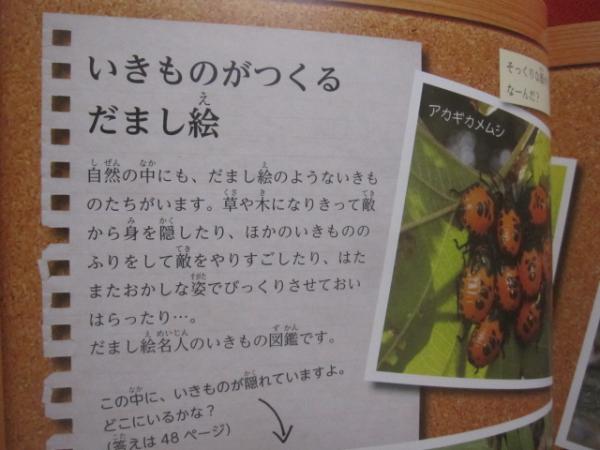 いきものがつくる
だまし絵
自然の中にも、だまし絵のようないきも
のたちがいます。草や木になりきって敵
から身を隠したり、ほかのいきものの
ふりをして敵をやりすごしたり、はた
またおかしな姿でびっくりさせておい
はらったり…。
だまし絵名人のいきもの図鑑です。
この中に、いきものが隠れていますよ。
どこにいるかな?
(答えは48ページ)
アカギカメムシ
そっくりな
なーんだ?